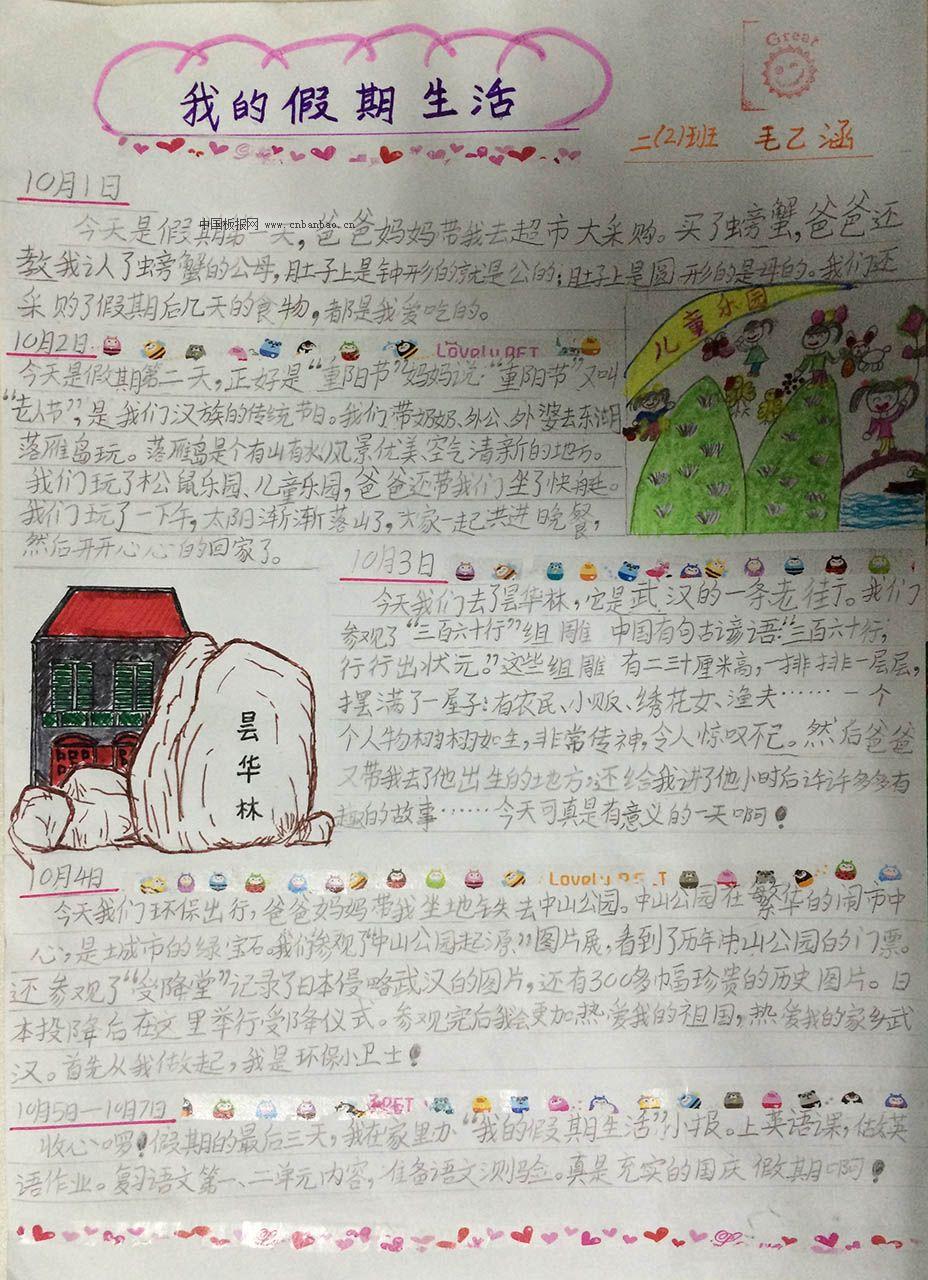 Great
我的假期生活
二(2)班 毛乙涵
10月1日
中国板报网 www.cnbanbao.cn
今天是假期第一天,爸爸妈妈带我去超市大采购。买了螃蟹,爸爸还
教我认了螃蟹的公母,肚子上是钟形的就是公的;肚子上是圆形的是母的。我们还
采购了假期后几天的食物,都是我爱吃的。
儿童乐园
10月2日
Lovely PET
今天是假期第二天,正好是“重阳节”妈妈说“重阳节”又叫
“老人节”,是我们汉族的传统节日。我们带奶奶、外公、外婆去东湖
落雁岛玩。落雁岛是个有山有水风景优美、空气清新的地方。
我们玩了松鼠乐园、儿童乐园,爸爸还带我们坐了快艇。
我们玩了一下午,太阳渐渐落山了,大家一起共进晚餐,
然后开开心心的回家了。
10月3日
今天我们去了昙华林,它是武汉的一条老街。我们
参观了“三百六十行”组雕 中国有句古谚语:“三百六十行,
行行出状元。”这些组雕有二三十厘米高,一排排一层层,
摆满了一屋子:有农民、小贩、绣花女、渔夫……一个
个人物栩栩如生,非常传神,令人惊叹不已。然后爸爸
又带我去了他出生的地方;还给我讲了他小时后许许多多有
趣的故事……今天可真是有意义的一天啊!
昙华林
10月4日
Lovely PET
今天我们环保出行,爸爸妈妈带我坐地铁去中山公园。中山公园在繁华的闹市中
心;是城市的绿宝石。我们参观了“中山公园起源”图片展,看到了历年中山公园的门票。
还参观了“受降堂”记录了日本侵略武汉的图片,还有300多幅珍贵的历史图片。日
本投降后在这里举行受降仪式。参观完后我会更加热爱我的祖国,热爱我的家乡武
汉。首先从我做起,我是环保小卫士!
10月5日—10月7日
PET
收心啰!假期的最后三天,我在家里办“我的假期生活”小报。上英语课,做英
语作业。复习语文第一、二单元内容,准备语文测验。真是充实的国庆假期啊!